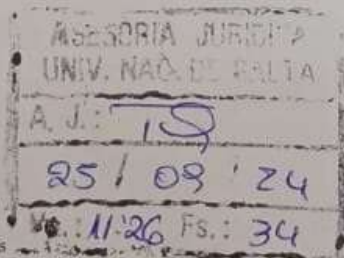 ASESORIA JURIDICA
UNIV. NAC. DE SALTA
A. J.:
25 / 09 / 24
11:26 Fs.: 34